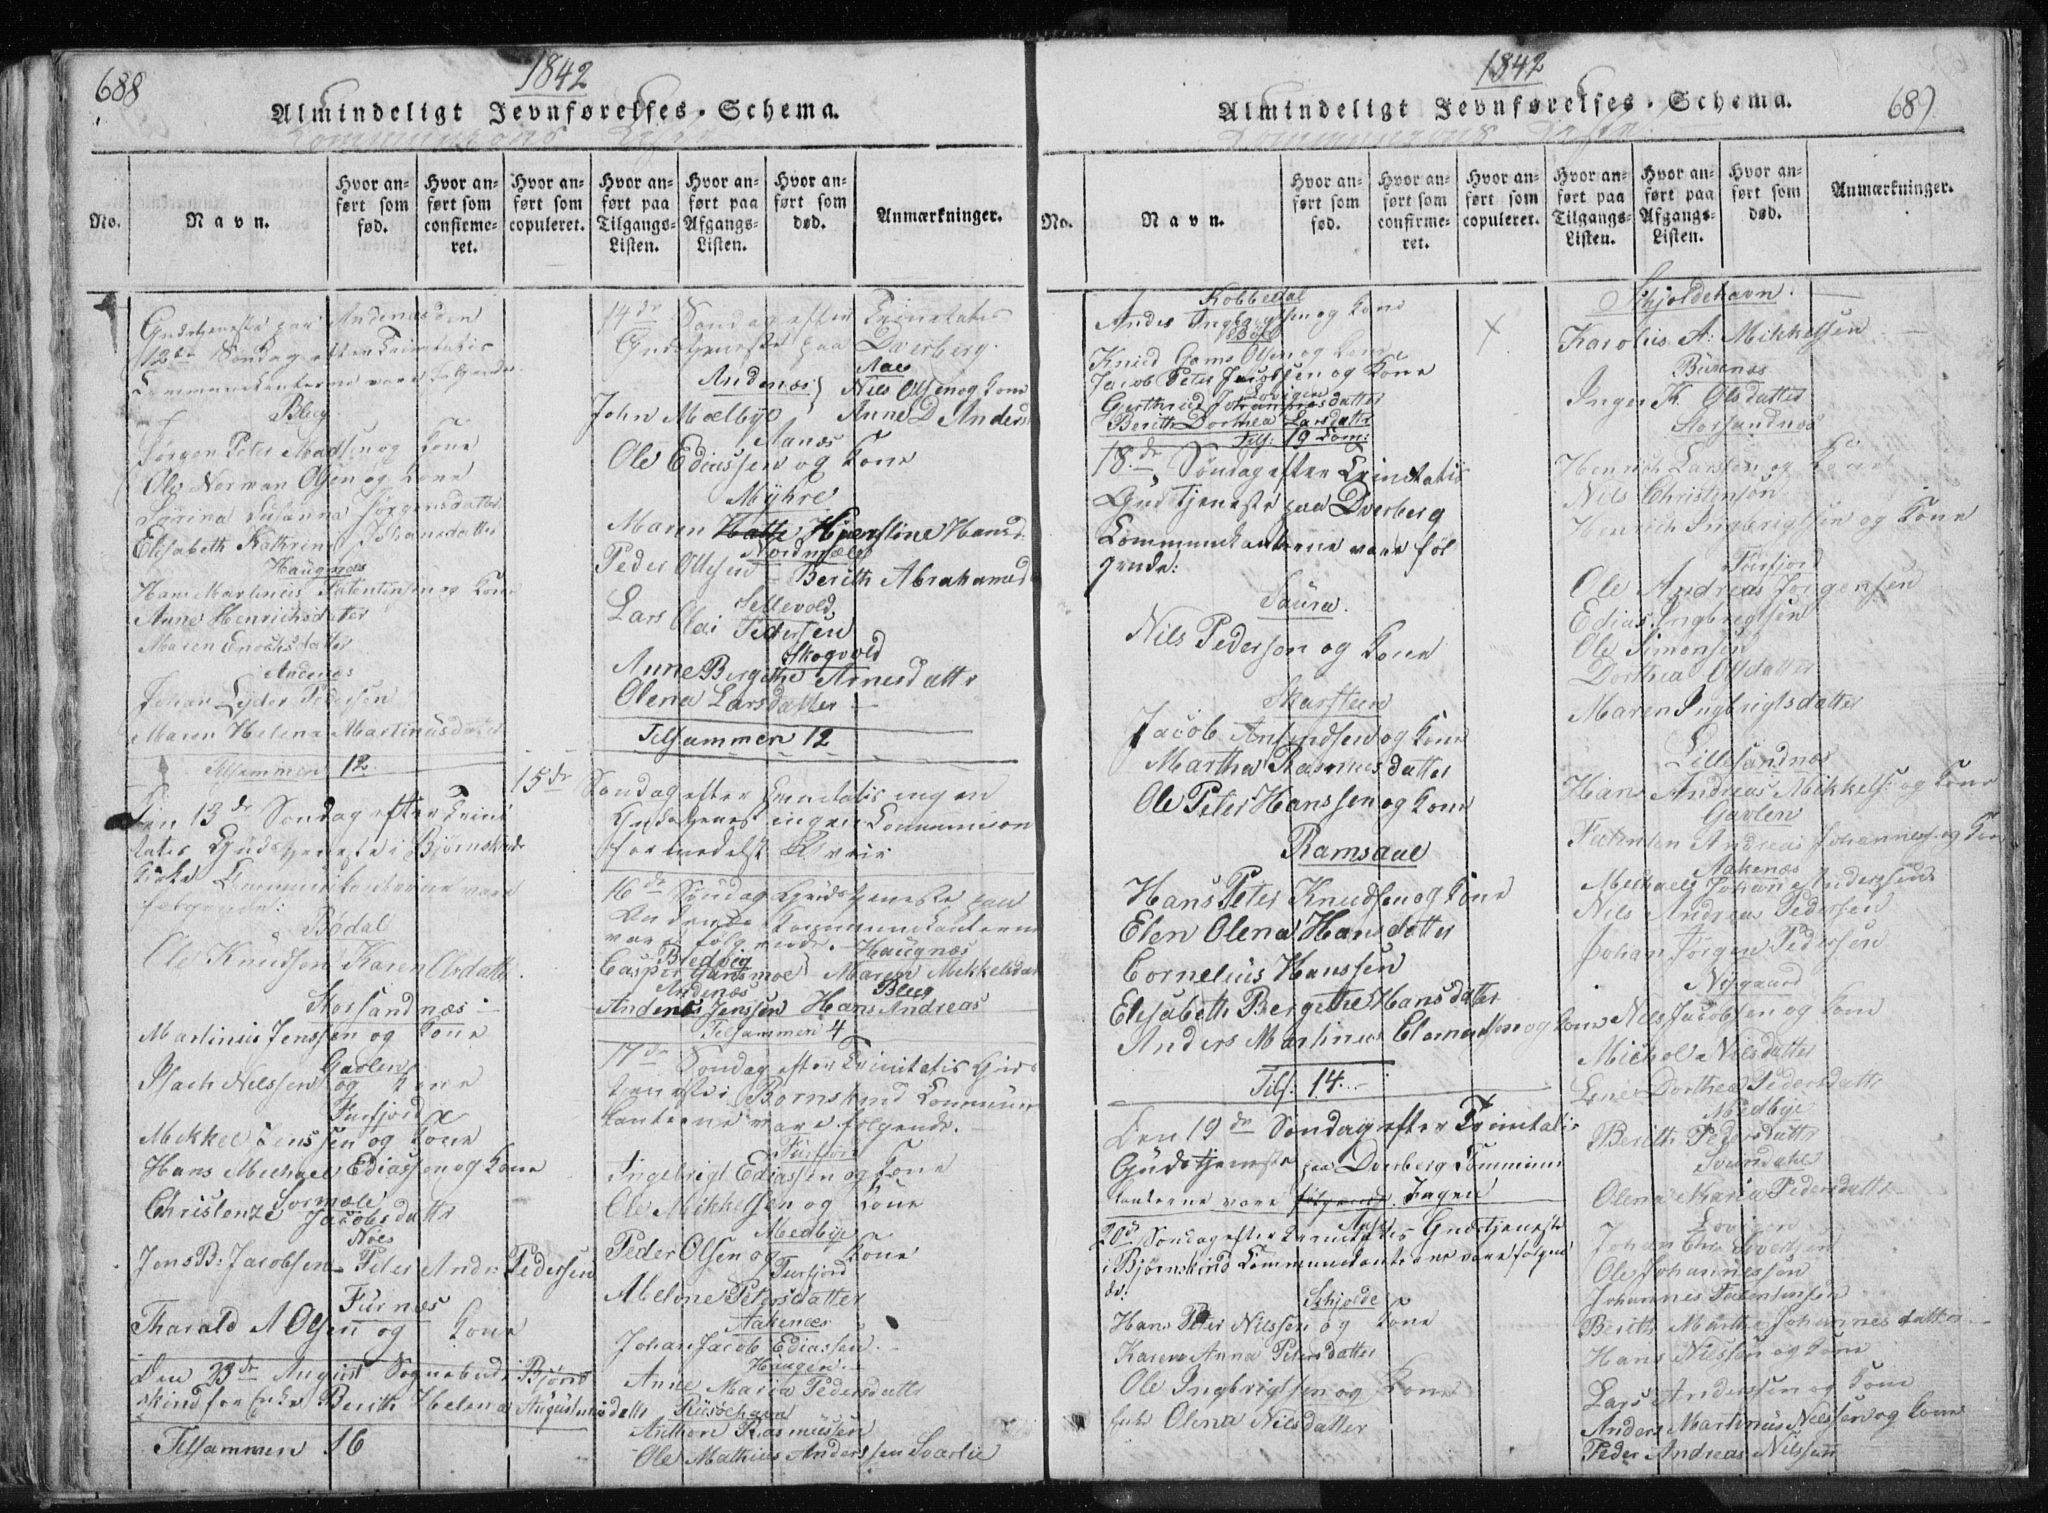 688
1842
Almindeligt Jevnførelses-Schema.
Communions
No.
Navn.
Hvor anført som fød.
Hvor anført som confirmeret.
Hvor anført som copuleret.
Hvor anført paa Tilgangs-Listen.
Hvor anført paa Afgangs-Listen.
Hvor anført som død.
Anmærkninger.
Gudstjeneste paa Andenæs den
12te Søndag efter Trinitatis
Communikanterne vare følgende
Bleg
Jørgen Peter Madsen og Kone
Ole Norman Olsen og Kone
Sørina Susanna Jørgensdatter
Elisabeth Kathrina Johansdatter
Haugnæs
Hans Martinus og Kone
Anne Henrichsdatter
Maren Enochsdatter
Andenæs
Johan Lyder Pedersen
Maren Helena Martinusdatter
Tilsammen 12
Den 13de Søndag efter Trini
tatis Gudstjeneste i Bjørnskinds
Kirke Communikanterne vare
følgende:
Bødal
Ole Knudsen Karen Olsdatter
Storsandnæs
Martinus Jenssen og Kone
Gavlen
Isach Nilssen og Kone
Furfjord
Mekkel Jenssen og Kone
Hans Michael Ediassen og Kone
Sormæle
Jacobsdatter
Nøes
Jens B: Jacobsen Peter Andr: Pedersen
Furnæs
Tharald A Olsen og Kone
Den 23de August Sognebud i Bjørn
skind for Enke Berith Helena Augustinusdatt
Tilsammen 16
14de Søndag efter Trinitatis
Gudstjeneste paa Dverberg.
Andenæs
Aae
John Mælbye
Nils Olsen og Kone
Anne D Andersd
Aanæs
Ole Ediassen og Kone
Myhre
Maren Hjerstine Hansd:
Nordmæle
Peder Ollesen Berith Abrahamsd
Sellevold
Lars Olai Pedersen
Skogvold
Anne Bergithe Arnesdattr
Olena Larsdatter
Tilsammen 12
15de Søndag efter Trinitatis ingen
Gudstjenest ingen Communion
formedelst Uveir
16de Søndag Gudstjeneste paa
Andenæs Communikanterne
vare følgende.
Bledvig
Haugnæs
Casper Maren Mekkelsdat
Andenæs
Bleg
Anders Jenssen Hans Andreas
Tilsammen 4
17de Søndag efter Trinitatis Guds
tjeneste i Bornskind Commun
kanterne vare følgende.
Furfjord
Ingebrigt Ediassen og Kone
Ole Mikkelsen og Kone
Medbye
Peder Olsen og Kone
Furfjord
Abelone Petersdatter
Aakenæs
Johan Jacob Ediassen
Haugen
Anne Maria Pedersdatter
Risøehavn
Anthon Rasmussen
Ole Mathias Anderssen Svarlie
1842
689
Almindeligt Jevnførelses-Schema.
Communions
No.
Navn.
Hvor anført som fød.
Hvor anført som confirmeret.
Hvor anført som copuleret.
Hvor anført paa Tilgangs-Listen.
Hvor anført paa Afgangs-Listen.
Hvor anført som død.
Anmærkninger.
Kobbedal
Andes Ingbrigtsen og Kone
Knud Gams Olsen og Kone
Jacob Peter Jacobsen og Kone
Lovigen
Gerthrud
Berith Dorthea Larsdatter
Tils: 19 Com:
18de Søndag efter Trinitatis
Gudstjeneste paa Dverberg
Communikanterne vare føl
gende:
Saura.
Nils Pederson og Kone
Skarsteen
Jacob Amundsen og Kone
Martha Rasmusdatter
Ole Peter Hanssen og Kone
Ramsaae
Hans Peter Knudsen og Kone
Elen Olena Hansdatter
Cornelius Hanssen
Elisabeth Bergithe Hansdatter
Anders Martinus Clemedtson og Kone
Tils: 14.
Den 19de Søndag efter Trinitatis
Gudstjeneste paa Dverberg Commun
kanterne vare følgende. Ingen
20de Søndag efter Trinitatis Gudstjeneste
i Bjørnskind Communikanterne vare følgen
de:
Schjolde
Hans Peter Nilssen og Kone
Karen Anna Petersdatter
Ole Ingbrigtsen og Kone
Enke Olena Nilsdatter
Schjoldehavn.
Karolius A: Mikkelsen
Buknæs
Inger K. Olsdatter
Storsandnæs
Henrich Larsen og Kone
Nils Christensøn
Henrich Ingbrigtsen og Kone
Furfjord
Ole Andreas Jørgensen
Edias Ingbregtsen
Ole Simonsen
Dorthea Olsdatter
Maren Ingbrigtsdatter
Lillesandnæs
Hans Andreas Mikkels: og Kone
Gavlen
Andreas Johannes: og Kone
Aakenæs
Michael Johan Andersen
Nils Andreas Pedersen
Johan Jørgen Pedersen
Nygaard
Nils Jacobsen og Kone
Michol Nilsdatter
Lene Dorthea Pedersdattr
Medbye
Berith Pedersdattr
Svendahl
Olena Maria Pedersdatter
Lovigen
Johan Chr: Sivertsen
Ole Johannessen
Johannes
Berith Marthe Johannesdatter
Hans Nilssen og Kone
Lars Anderssen og Kone
Anders Martinus Nilssen og Kone
Peder Andreas Nilssen